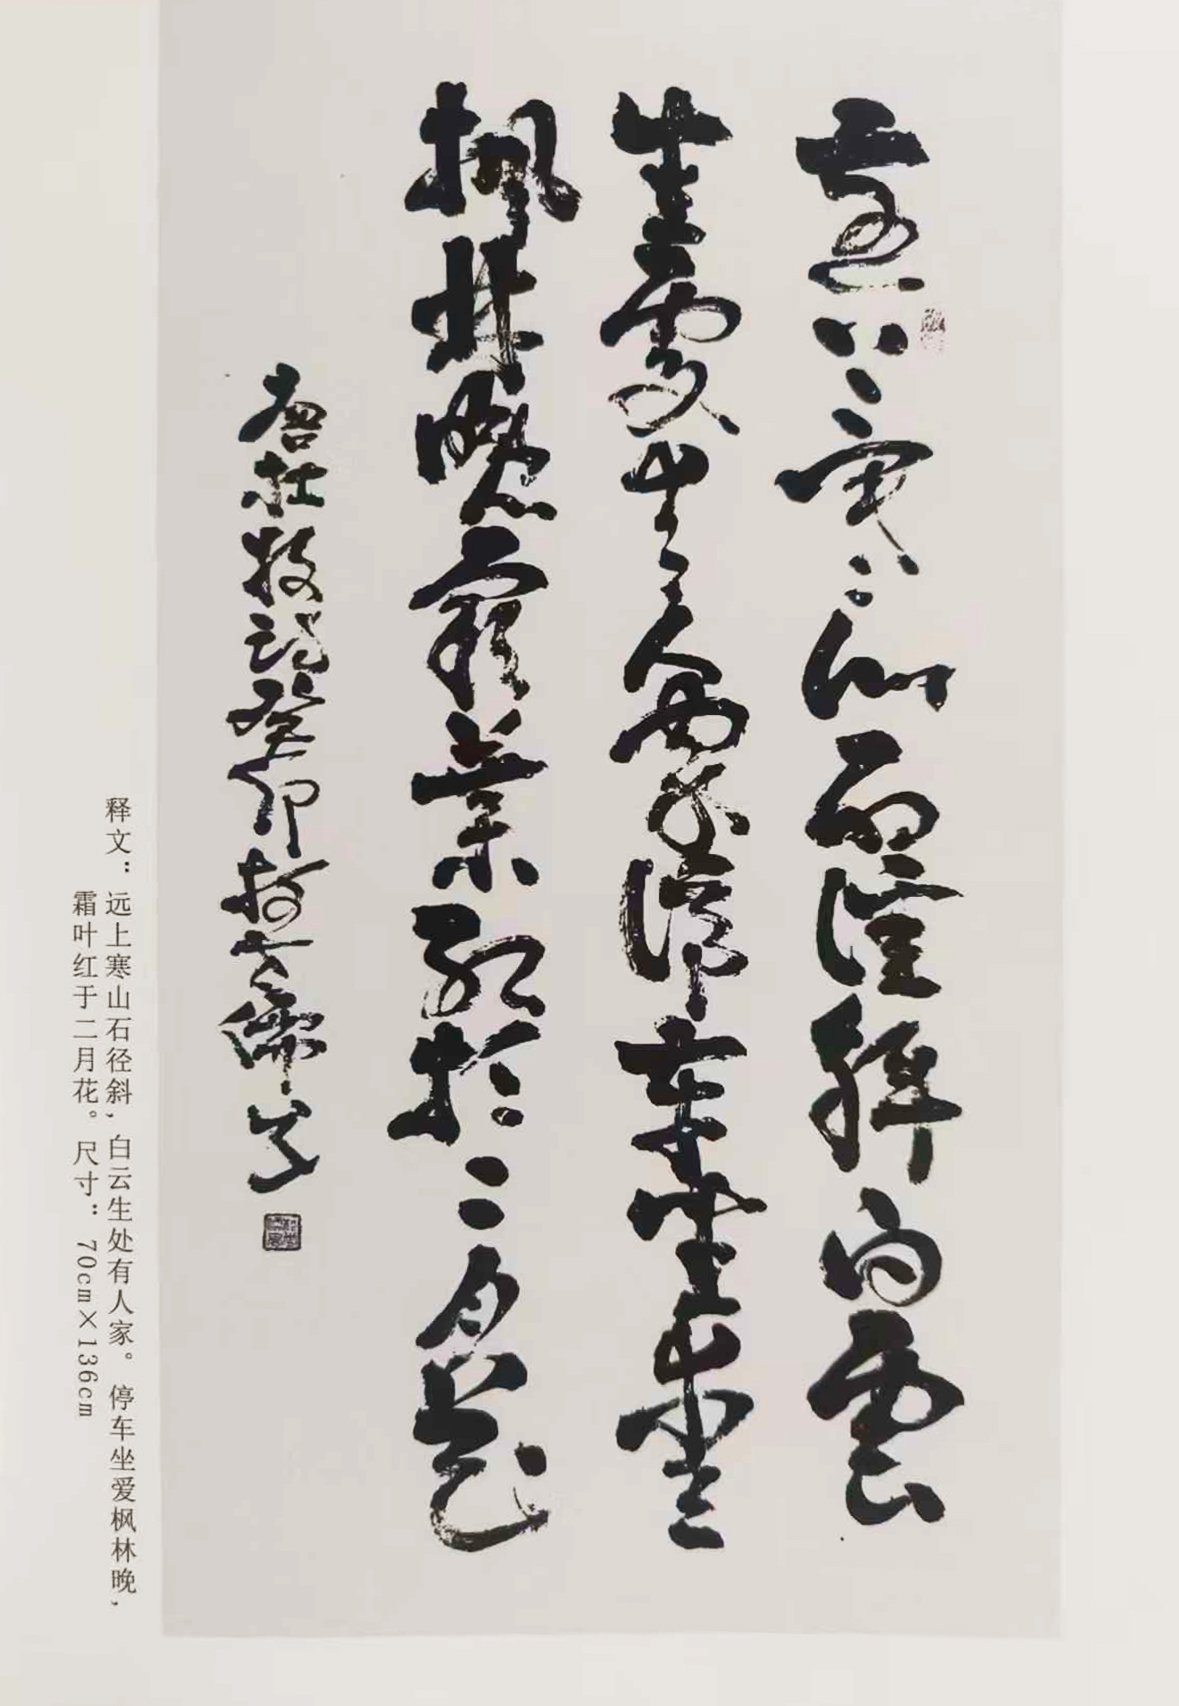 遠上寒山石径斜白雲
生處有人家停車坐愛
枫林晚霜葉红於二月花
唐杜牧詩癸卯
释文：远上寒山石径斜，白云生处有人家。停车坐爱枫林晚，
霜叶红于二月花。尺寸：70cm×136cm